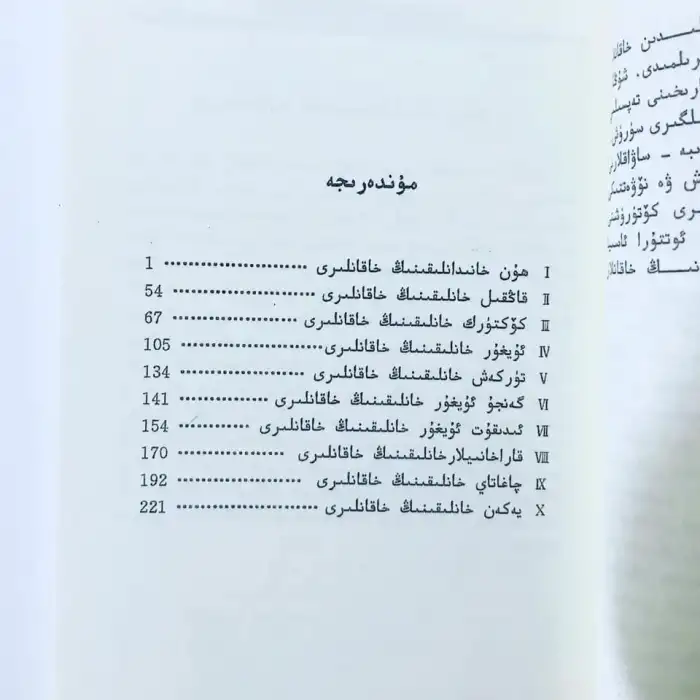 مۇندەرىجە
I ھۇن خانىدانلىقىنىڭ خاقانلىرى ······················· 1
II قاڭقىل خانلىقىنىڭ خاقانلىرى ······················· 54
III كۆكتۈرك خانلىقىنىڭ خاقانلىرى ···················· 67
IV ئۇيغۇر خانلىقىنىڭ خاقانلىرى······················· 105
V تۈركەش خانلىقىنىڭ خاقانلىرى ···················· 134
VI گەنجۇ ئۇيغۇر خانلىقىنىڭ خاقانلىرى ·············· 141
VII ئىدىقۇت ئۇيغۇر خانلىقىنىڭ خاقانلىرى ············ 154
VIII قاراخانىيلارخانلىقىنىڭ خاقانلىرى ················· 170
IX چاغاتاي خانلىقىنىڭ خاقانلىرى ···················· 192
X يەكەن خانلىقىنىڭ خاقانلىرى ······················· 221
رىلمىدى.
ارىخىنى تەپسىلى
لگىرى سۈرۈش
ىبە - ساۋاقلار
ش ۋە نۆۋەتتىكى
رى كۆتۈرۈش
ئوتتۇرا ئاسىيا
نىڭ خاقانلار